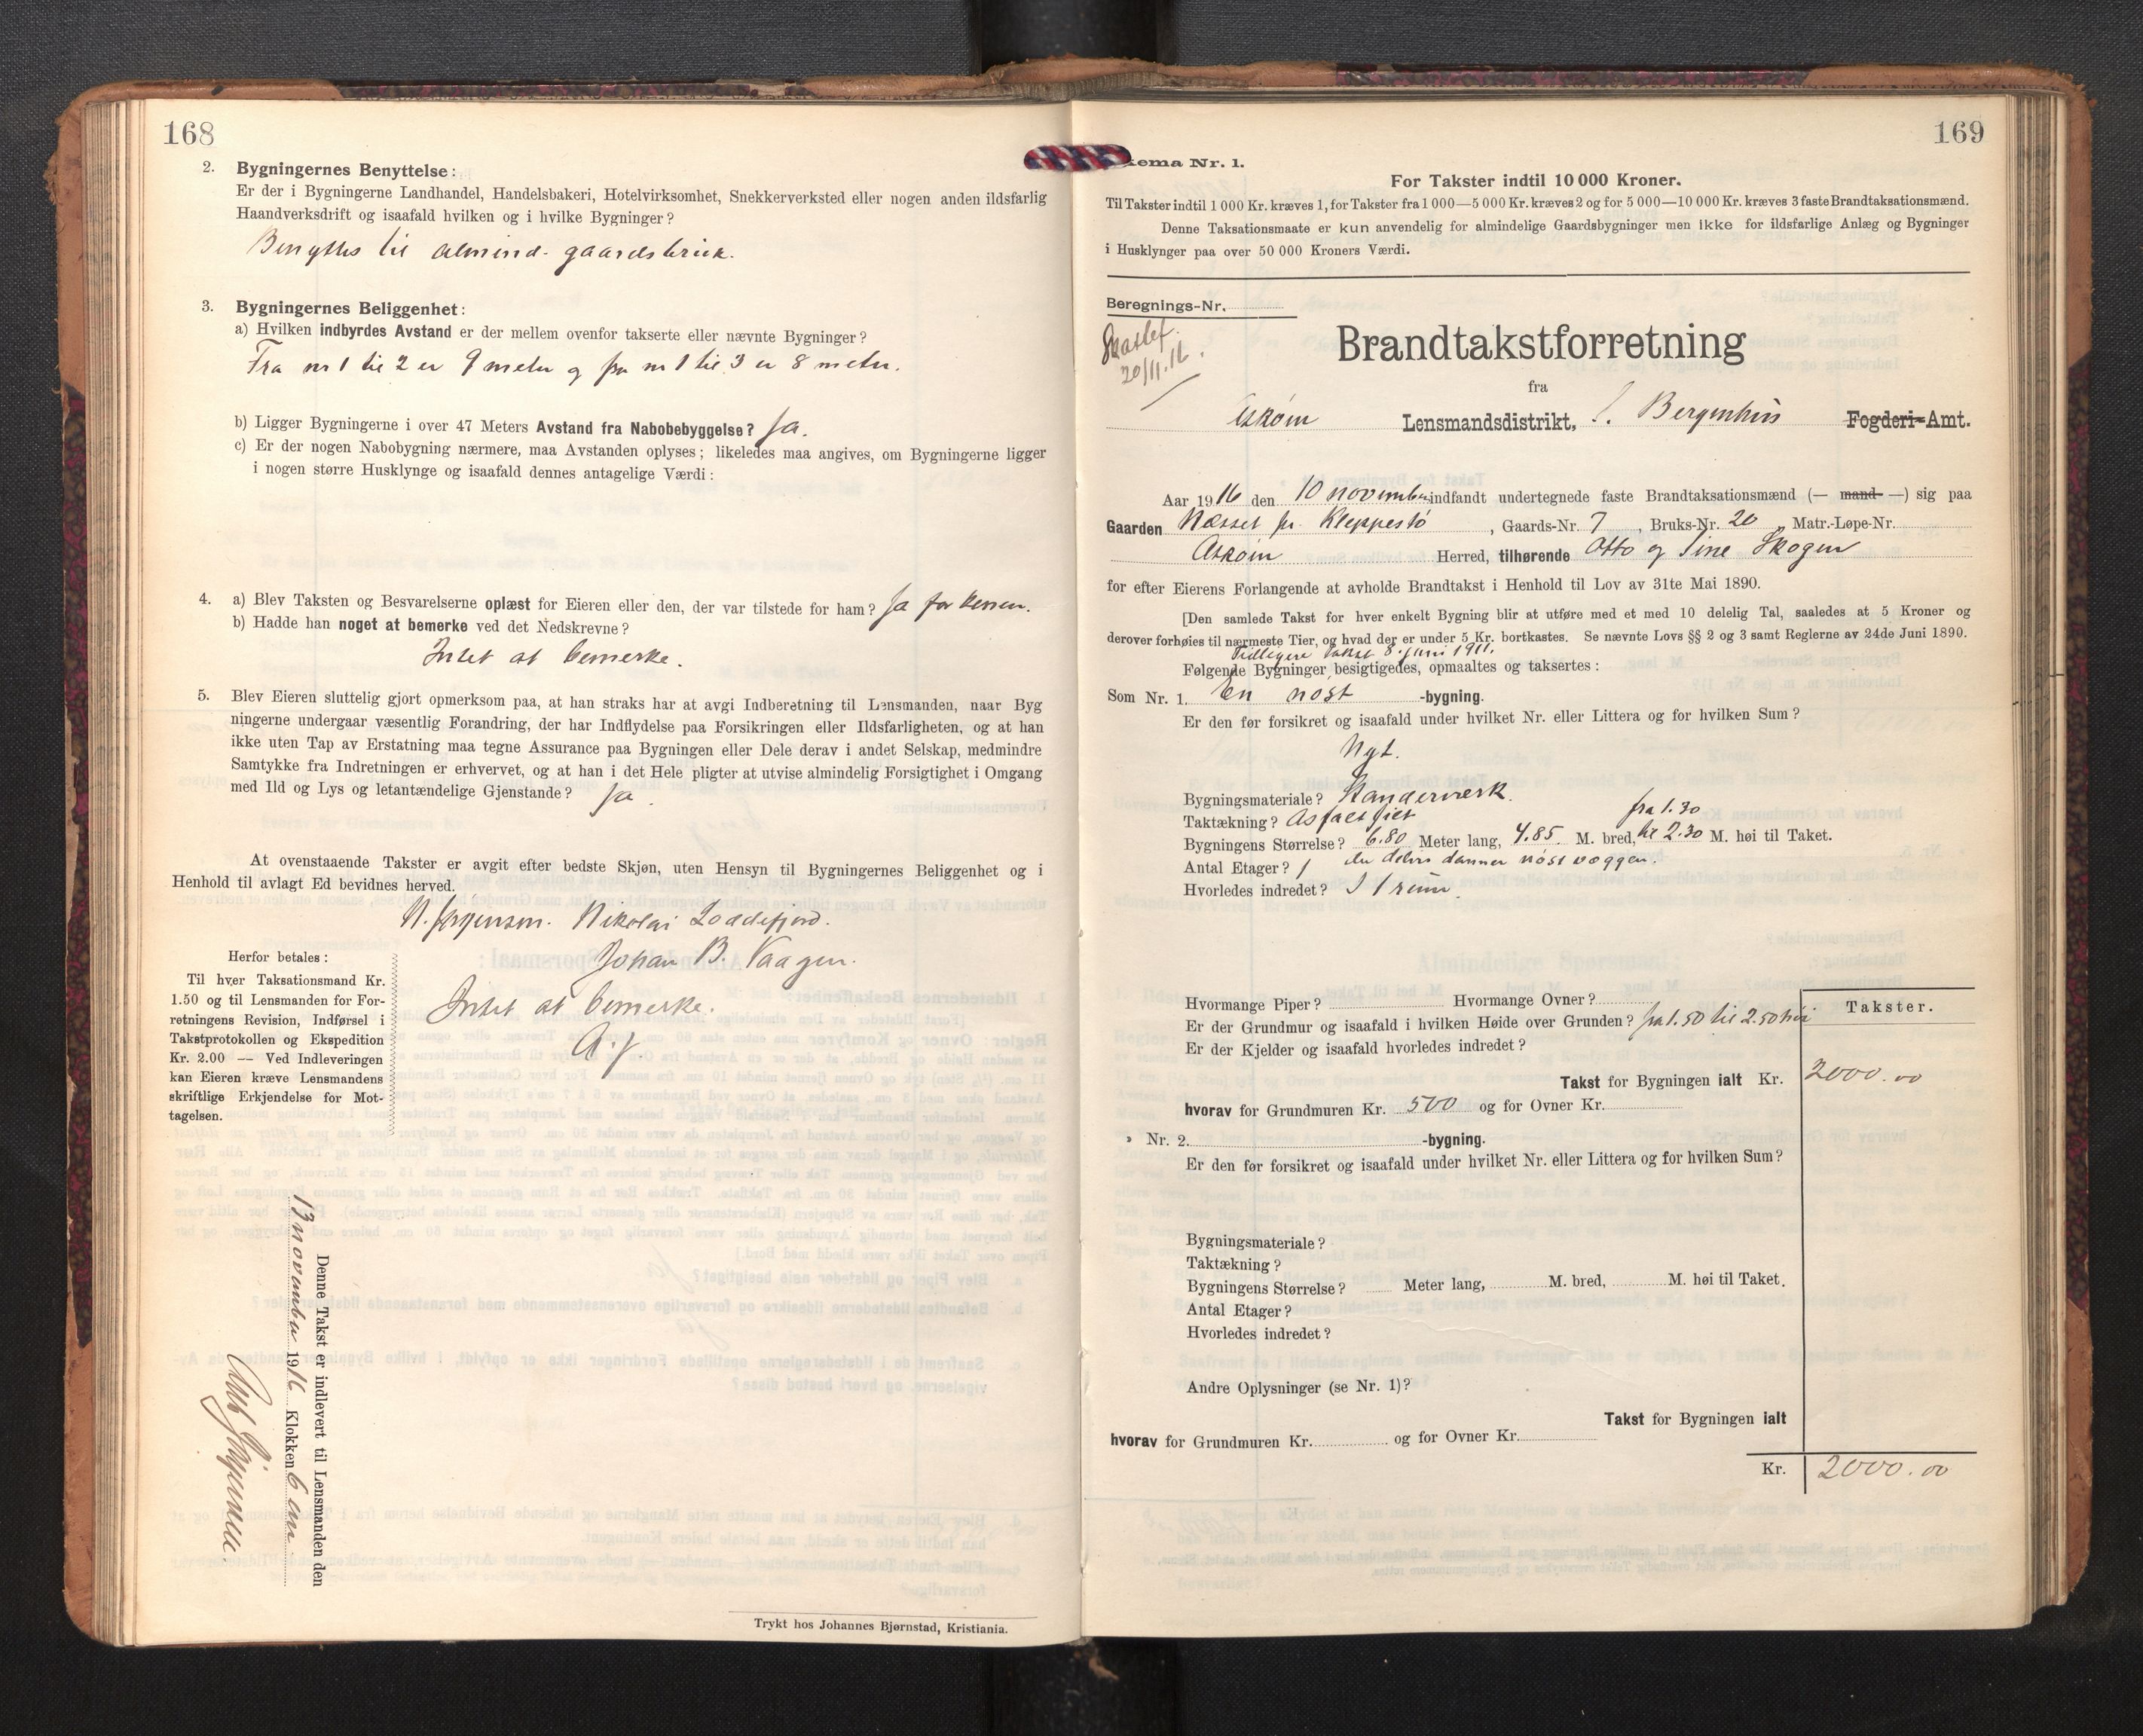 168
2. Bygningernes Benyttelse:
Er der i Bygningerne Landhandel, Handelsbakeri, Hotelvirksomhet, Snekkerverksted eller nogen anden ildsfarlig
Haandverksdrift og isaafald hvilken og i hvilke Bygninger?
Benyttes til almind. gaardsbruk.
3. Bygningernes Beliggenhet:
a) Hvilken indbyrdes Avstand er der mellem ovenfor takserte eller nævnte Bygninger?
Fra nr 1 til 2 er 9 meter og fra nr 1 til 3 er 8 meter.
b) Ligger Bygningerne i over 47 Meters Avstand fra Nabobebyggelse? Ja.
c) Er der nogen Nabobygning nærmere, maa Avstanden oplyses; likeledes maa angives, om Bygningerne ligger
i nogen større Husklynge og isaafald dennes antagelige Værdi:
4. a) Blev Taksten og Besvarelserne oplæst for Eieren eller den, der var tilstede for ham? Ja for
b) Hadde han noget at bemerke ved det Nedskrevne?
Intet at bemerke.
5. Blev Eieren sluttelig gjort opmerksom paa, at han straks har at avgi Indberetning til Lensmanden, naar Byg
ningerne undergaar væsentlig Forandring, der har Indflydelse paa Forsikringen eller Ildsfarligheten, og at han
ikke uten Tap av Erstatning maa tegne Assurance paa Bygningen eller Dele derav i andet Selskap, medmindre
Samtykke fra Indretningen er erhvervet, og at han i det Hele pligter at utvise almindelig Forsigtighet i Omgang
med Ild og Lys og letantændelige Gjenstande? Ja.
At ovenstaaende Takster er avgit efter bedste Skjøn, uten Hensyn til Bygningernes Beliggenhet og i
Henhold til avlagt Ed bevidnes herved.
N. Jørgensen. Nikolai Loddefjord.
Johan B. Vaagen.
Intet at bemerke.
A. J.
Herfor betales:
Til hver Taksationsmand Kr.
1.50 og til Lensmanden for For-
retningens Revision, Indførsel i
Takstprotokollen og Ekspedition
Kr. 2.00 — Ved Indleveringen
kan Eieren kræve Lensmandens
skriftlige Erkjendelse for Mot-
tagelsen.
Denne Takst er indlevert til Lensmanden den
13 november 1916 Klokken 6 em.
Trykt hos Johannes Bjørnstad, Kristiania.
169
kema Nr. 1.
For Takster indtil 10 000 Kroner.
Til Takster indtil 1 000 Kr. kræves 1, for Takster fra 1 000—5 000 Kr. kræves 2 og for 5 000—10 000 Kr. kræves 3 faste Brandtaksationsmænd.
Denne Taksationsmaate er kun anvendelig for almindelige Gaardsbygninger men ikke for ildsfarlige Anlæg og Bygninger
i Husklynger paa over 50 000 Kroners Værdi.
Beregnings-Nr.
20/11.16.
Brandtakstforretning
fra
Askøin Lensmandsdistrikt, S. Bergenhus Fogderi-Amt.
Aar 1916 den 10 november indfandt undertegnede faste Brandtaksationsmænd (— mand —) sig paa
Gaarden Næsset pr. Kleppestø, Gaards-Nr. 7, Bruks-Nr. 20 Matr.-Løpe-Nr.
Askøin Herred, tilhørende Otto og Sine Skogen
for efter Eierens Forlangende at avholde Brandtakst i Henhold til Lov av 31te Mai 1890.
[Den samlede Takst for hver enkelt Bygning blir at utføre med et med 10 delelig Tal, saaledes at 5 Kroner og
derover forhøies til nærmeste Tier, og hvad der er under 5 Kr. bortkastes. Se nævnte Lovs §§ 2 og 3 samt Reglerne av 24de Juni 1890.
Tidligere takst 8. juni 1911.
Følgende Bygninger besigtigedes, opmaaltes og taksertes:
Som Nr. 1. En nøst -bygning.
Er den før forsikret og isaafald under hvilket Nr. eller Littera og for hvilken Sum?
Nyt.
Bygningsmateriale? Standerverk.
Taktækning? Asfaltfilt fra 1.30
Bygningens Størrelse? 6.80 Meter lang, 4.85 M. bred, til 2.30 M. høi til Taket.
Antal Etager? 1 der delvis danner nøst væggen.
Hvorledes indredet? I 1 rum
Hvormange Piper? Hvormange Ovner?
Takster.
Er der Grundmur og isaafald i hvilken Høide over Grunden? fra 1.50 til 2.50 høi
Er der Kjelder og isaafald hvorledes indredet?
Takst for Bygningen ialt Kr. 2000.00
hvorav for Grundmuren Kr. 500 og for Ovner Kr.
» Nr. 2. -bygning.
Er den før forsikret og isaafald under hvilket Nr. eller Littera og for hvilken Sum?
Bygningsmateriale?
Taktækning?
Bygningens Størrelse? Meter lang, M. bred, M. høi til Taket.
Antal Etager?
Hvorledes indredet?
Andre Oplysninger (se Nr. 1)?
Takst for Bygningen ialt
hvorav for Grundmuren Kr. og for Ovner Kr.
Kr. 2000.00